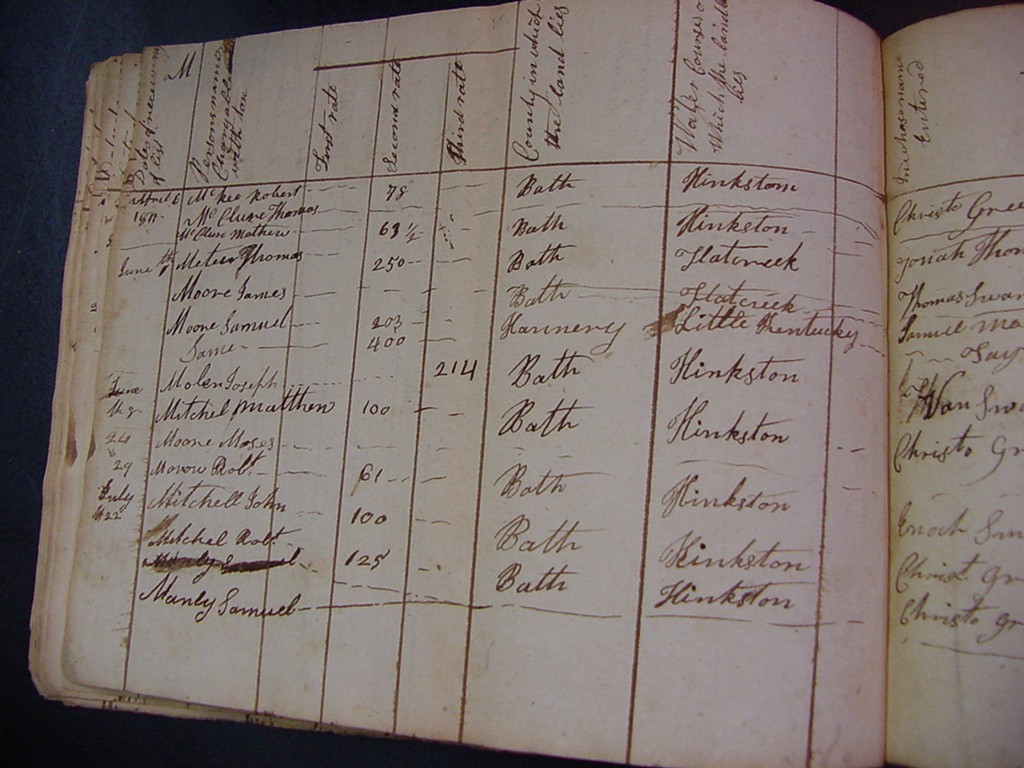 M
Dates of receiving of list
Persons names Chargeable with tax
First rate
Second rate
Third rate
County in which the land lies
Water Courses on Which the land lies
In whose name Entered
April 6 McKee Robert 78 Bath Hinkston Christo Gree
1811 McClure Thomas
McClure Mathew 63 1/2 Bath Hinkston Josiah Thom
June Meteer Thomas 250 Bath Flatcreek Thomas Swan
Moore James Bath Flatcreek Samuel
Moore Samuel 203 Little Kentucky
Same 400
June Molen Joseph 214 Bath Hinkston Wan Swa
Mitchel Matthew 100 Bath Hinkston Christo Gr
24 Moore Moses
29 Robt 61 Bath Hinkston Enoch
July Mitchell John
22 100 Bath Hinkston Christ Gr
Mitchel Robt
125 Bath Hinkston Christo Gr
Manly Samuel